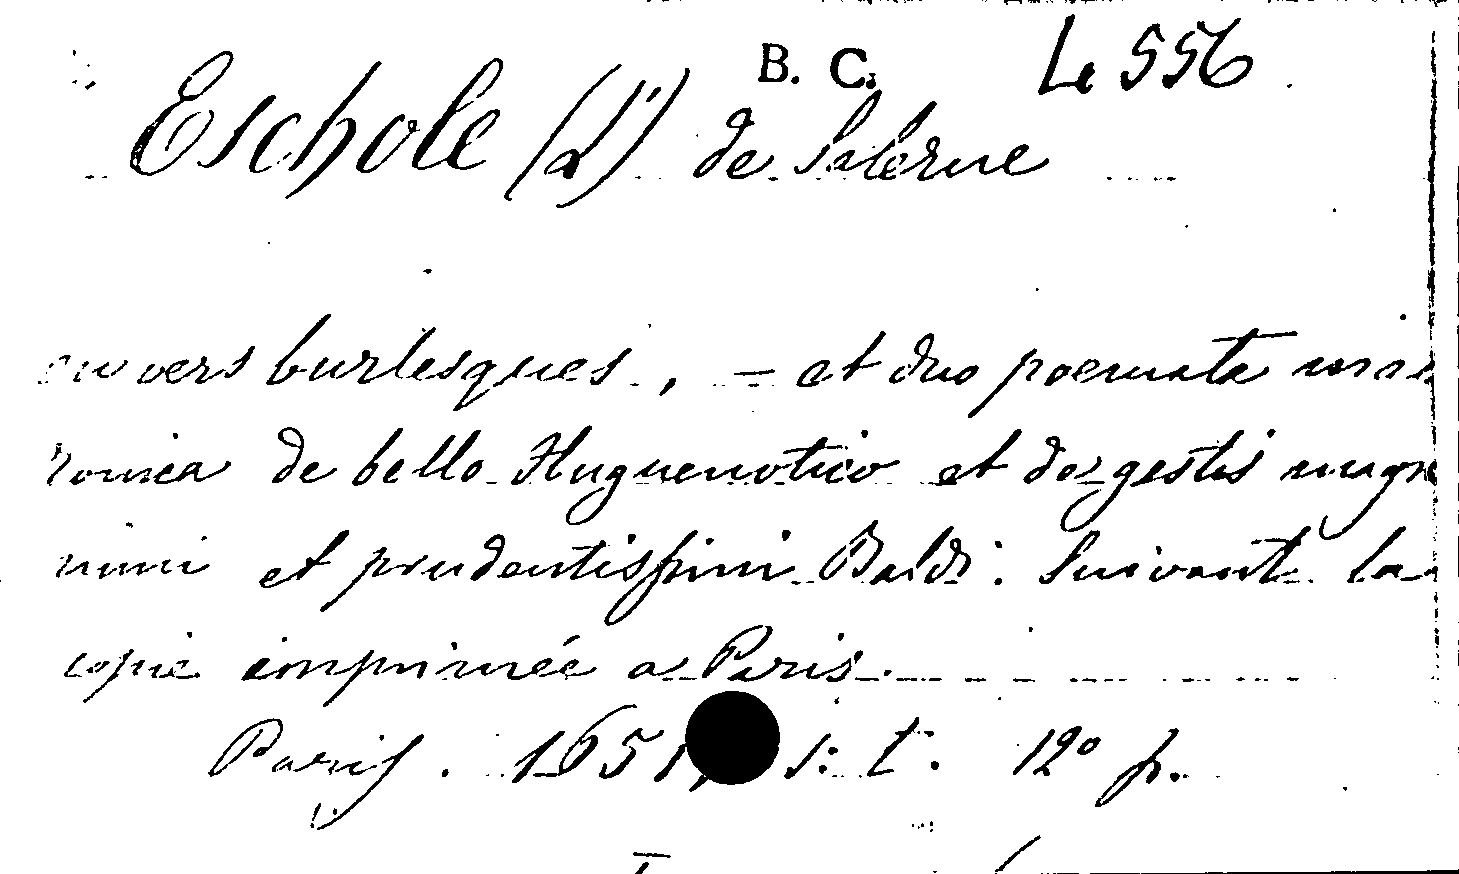 B. C. Le 556
Eschole (L') de Salerne
en vers burlesques, — et duo poemata maca
ronica de bello Huguenotico et de gestis magna
nimi et prudentissimi Baldi. Suivant la
copie imprimée a Paris.
Paris. 1651, s: t. 12° p.